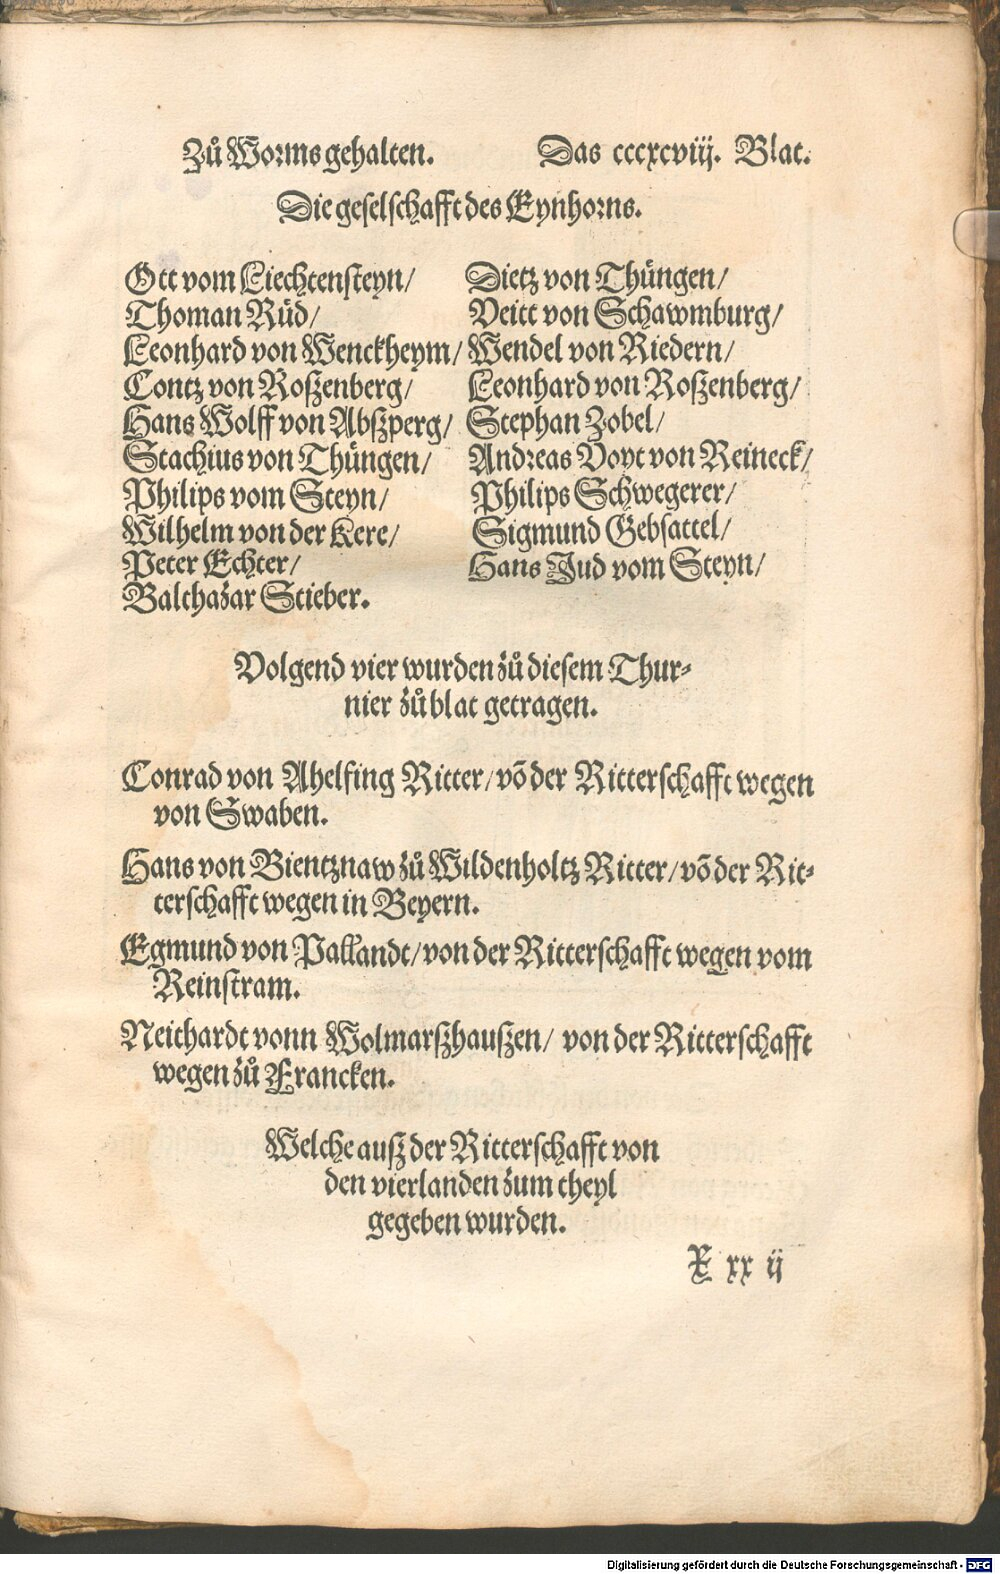 Zů Worms gehalten. Das cccxcviij. Blat.
Die geselschafft des Eynhorns.
Ott vom Liechtensteyn/
Thoman Rüd/
Leonhard von Wenckheym/
Contz von Roßenberg/
Hans Wolff von Abßperg/
Stachius von Thüngen/
Philips vom Steyn/
Wilhelm von der Kere/
Peter Echter/
Balthazar Stieber.
Dietz von Thüngen/
Veitt von Schawmburg/
Wendel von Riedern/
Leonhard von Roßenberg/
Stephan Zobel/
Andreas Voyt von Reineck/
Philips Schwegerer/
Sigmund Gebsattel/
Hans Jud vom Steyn/
Volgend vier wurden zů diesem Thur⸗
nier zů blat getragen.
Conrad von Ahelfing Ritter/ võ der Ritterschafft wegen
von Swaben.
Hans von Bientznaw zů Wildenholtz Ritter/ võ der Rit⸗
terschafft wegen in Beyern.
Egmund von Pallandt/ von der Ritterschafft wegen vom
Reinstram.
Neithardt vonn Wolmarßhaußen/ von der Ritterschafft
wegen zů Francken.
Welche auß der Ritterschafft von
den vierlanden zum theyl
gegeben wurden.
X xx ij
Digitalisierung gefördert durch die Deutsche Forschungsgemeinschaft - DFG